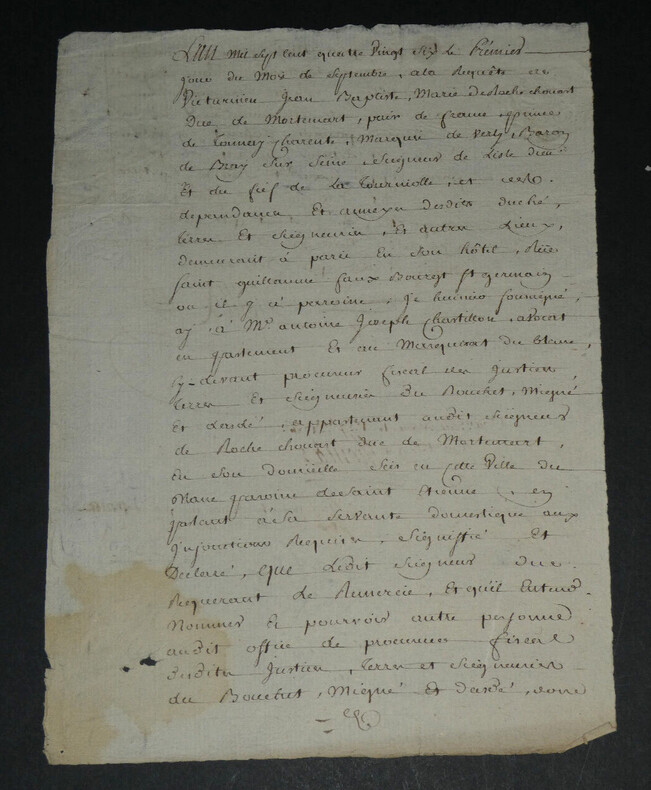 L'An mil sept cent quatre Vingt six le Prémier
jour du Mois de Septembre, a la Requête de
Victurnien Jean Baptiste, Marie de Roche chouart
Duc de Mortemart, pair de france, prince
de Tonnay charente, Marquis de Verly, Baron
de Bray Sur Seine, Seigneur de Lisle dieu
Et du fief de La Tourniolle, et
dependances, Et annéxes desdits duché,
terres Et Seigneuries, Et autres Lieux,
demeurant à paris En Son hôtel, Rüe
saint guillaume faux Bourgt St germain
ou il y a personne, Je huissier soussigné,
à Me antoine Joseph Chastillon, avocat
en parlement Et au Marquisat du blanc,
cy-devant procureur fiscal des Justices
terres Et Seigneuries Du Bouchet, Migné
Et dardé, appartenant audit Seigneur
de Roche chouart duc de Mortemart,
En Son domicille Scis en cette Ville du
blanc paroisse de Saint Etienne, en
parlant à Sa Servante domestique aux
Injonctions Requises, Signiffié Et
Déclaré, que Ledit Seigneur duc
Requerant Le Remercie, Et qu'il Entend
Nommer Et pourvoir autre personne
audit office de procureur fiscal
desdites Justices, terres et Seigneuries
du Bouchet, Migné Et dardé, dont